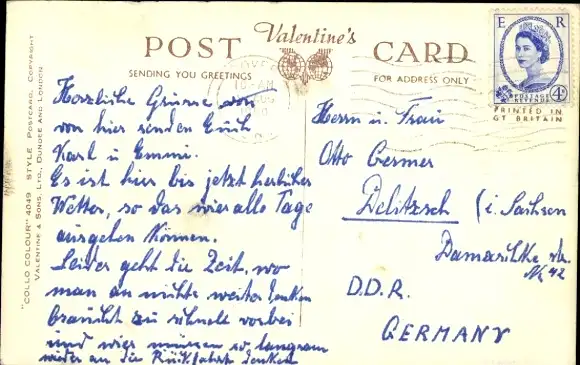 POST Valentine's CARD
SENDING YOU GREETINGS
FOR ADDRESS ONLY
E R
POSTAGE
REVENUE
4D
PRINTED IN
GT BRITAIN
"COLLO COLOUR" 4049 STYLE POSTCARD, COPYRIGHT
VALENTINE & SONS, LTD., DUNDEE AND LONDON.
Herzliche Grüsse von
von hier senden Euch
Karl u Emmi.
Es ist hier bis jetzt herlicher
Wetter, so das wier alle Tage
ausgehen können.
Leider geht die Zeit, wo
man an nichts weiter denken
braucht zu schnell vorbei
und wier müssen so langsam
wieder an die Rückfahrt denken
Herrn u. Frau
Otto Germer
Delitzsch (i. Sachsen
D.D.R.
GERMANY